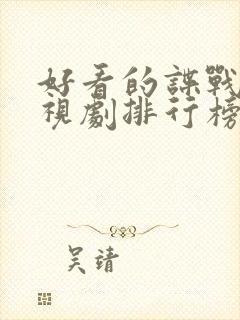 好看的諜戰
視劇排行榜
吴靖